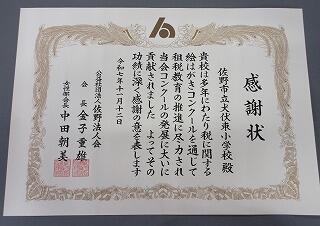 感謝状
佐野市立犬伏東小学校 殿
貴校は多年にわたり税に関する
絵はがきコンクールを通じて
租税教育の推進に尽力され
当会コンクールの発展に大いに
貢献されました よってその
功績に深く感謝の意を表します
令和七年十一月十二日
公益社団法人佐野法人会
会長 金子重雄
女性部会長 中田朝美